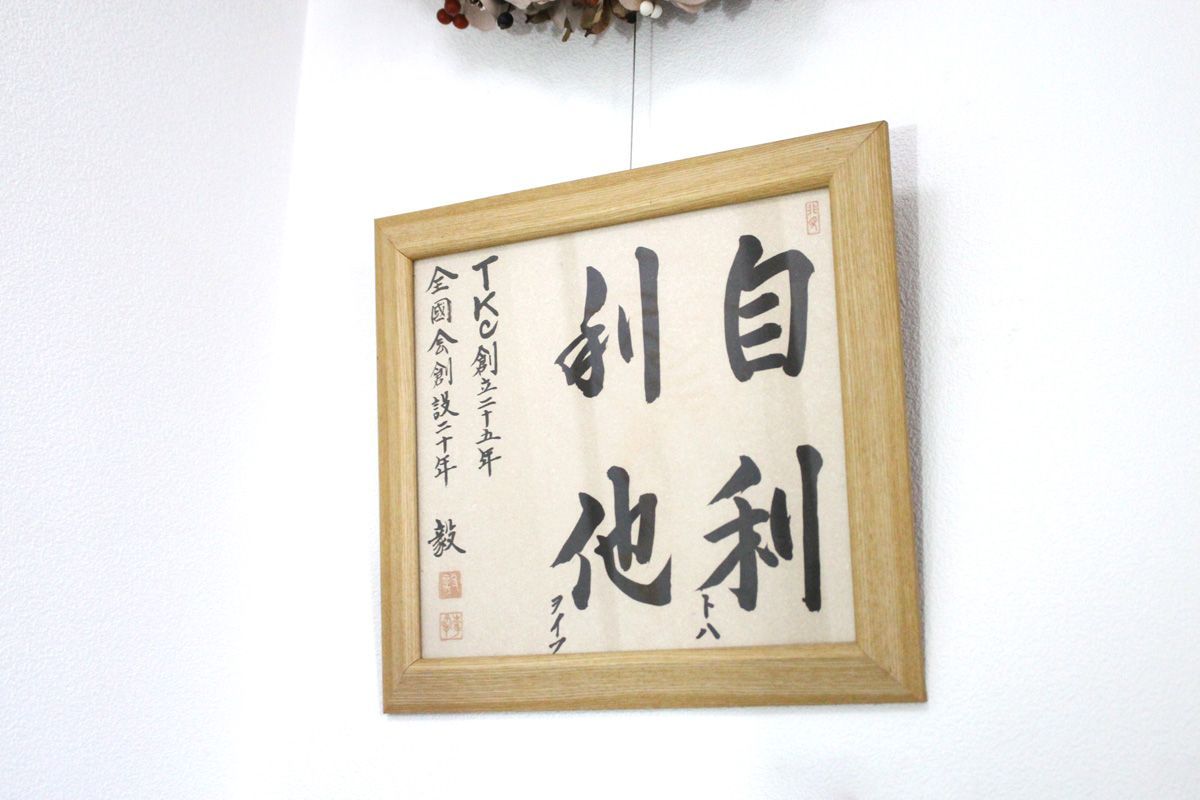 自利トハ
利他ヲイフ
TKC創立二十五年
全國会創設二十年
毅